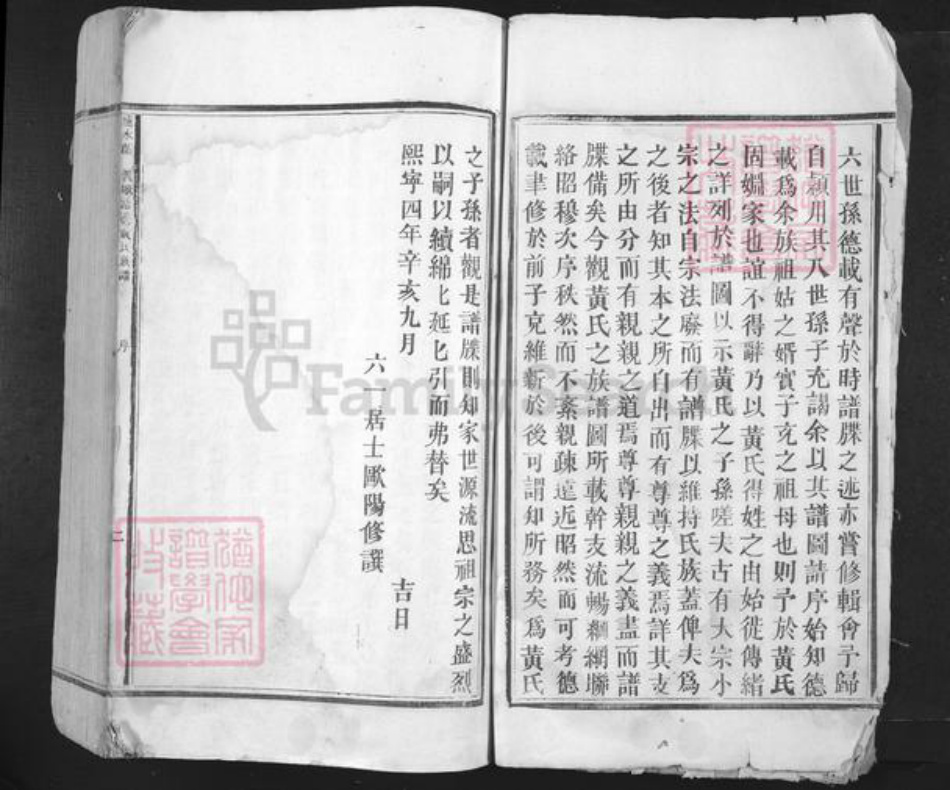 六世孫德載有聲於時譜牒之述亦嘗修輯會予歸
自潁川其八世孫子充謁余以其譜圖請序始知德
載爲余族祖姑之婿實子充之祖母也則予於黃氏
固婣家也誼不得辭乃以黃氏得姓之由始徙傳緒
之詳列於譜圖以示黃氏之子孫嗟夫古有大宗小
宗之法自宗法廢而有譜牒以維持氏族蓋俾夫爲
之後者知其本之所自出而有尊尊之義焉詳其支
之所由分而有親親之道焉尊尊親親之義盡而譜
牒備矣今觀黃氏之族譜圖所載幹支流暢綱網聯
絡昭穆次序秩然而不紊親疎遠近昭然而可考德
載聿修於前子克維新於後可謂知所務矣爲黃氏
之子孫者觀是譜牒則知家世源流思祖宗之盛烈
以嗣以續綿匕延匕引而弗替矣
熙寧四年辛亥九月 吉日
六一居士歐陽修譔
序
二
譜學會
藏
FamilySearch